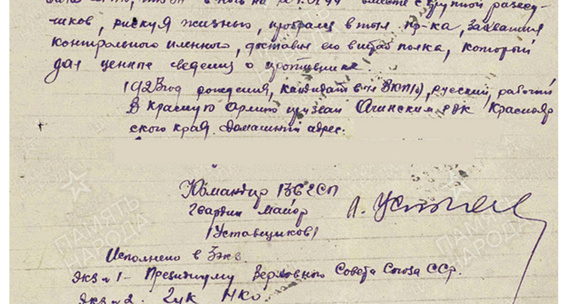 вместе с группой развед-
чиков, рискуя жизнью, пробрался в тыл пр-ка, захватил
контрольного пленного, доставил его в штаб полка, который
дал ценные сведения о противнике
1923 год рождения, кандидат в чл ВКП(б), русский, рабочий
В Красную Армию призван Ачинским РВК Краснояр
ского края. Домашний адрес:
Командир СП
Гвардии Майор
(Уставщиков)
Исполнено в 2 экз
экз N 1 - Президиуму Верховного Совета Союза ССР.
экз N 2. ГУК НКО
ПАМЯТЬ НАРОДА
ПАМЯТЬ НАРОДА